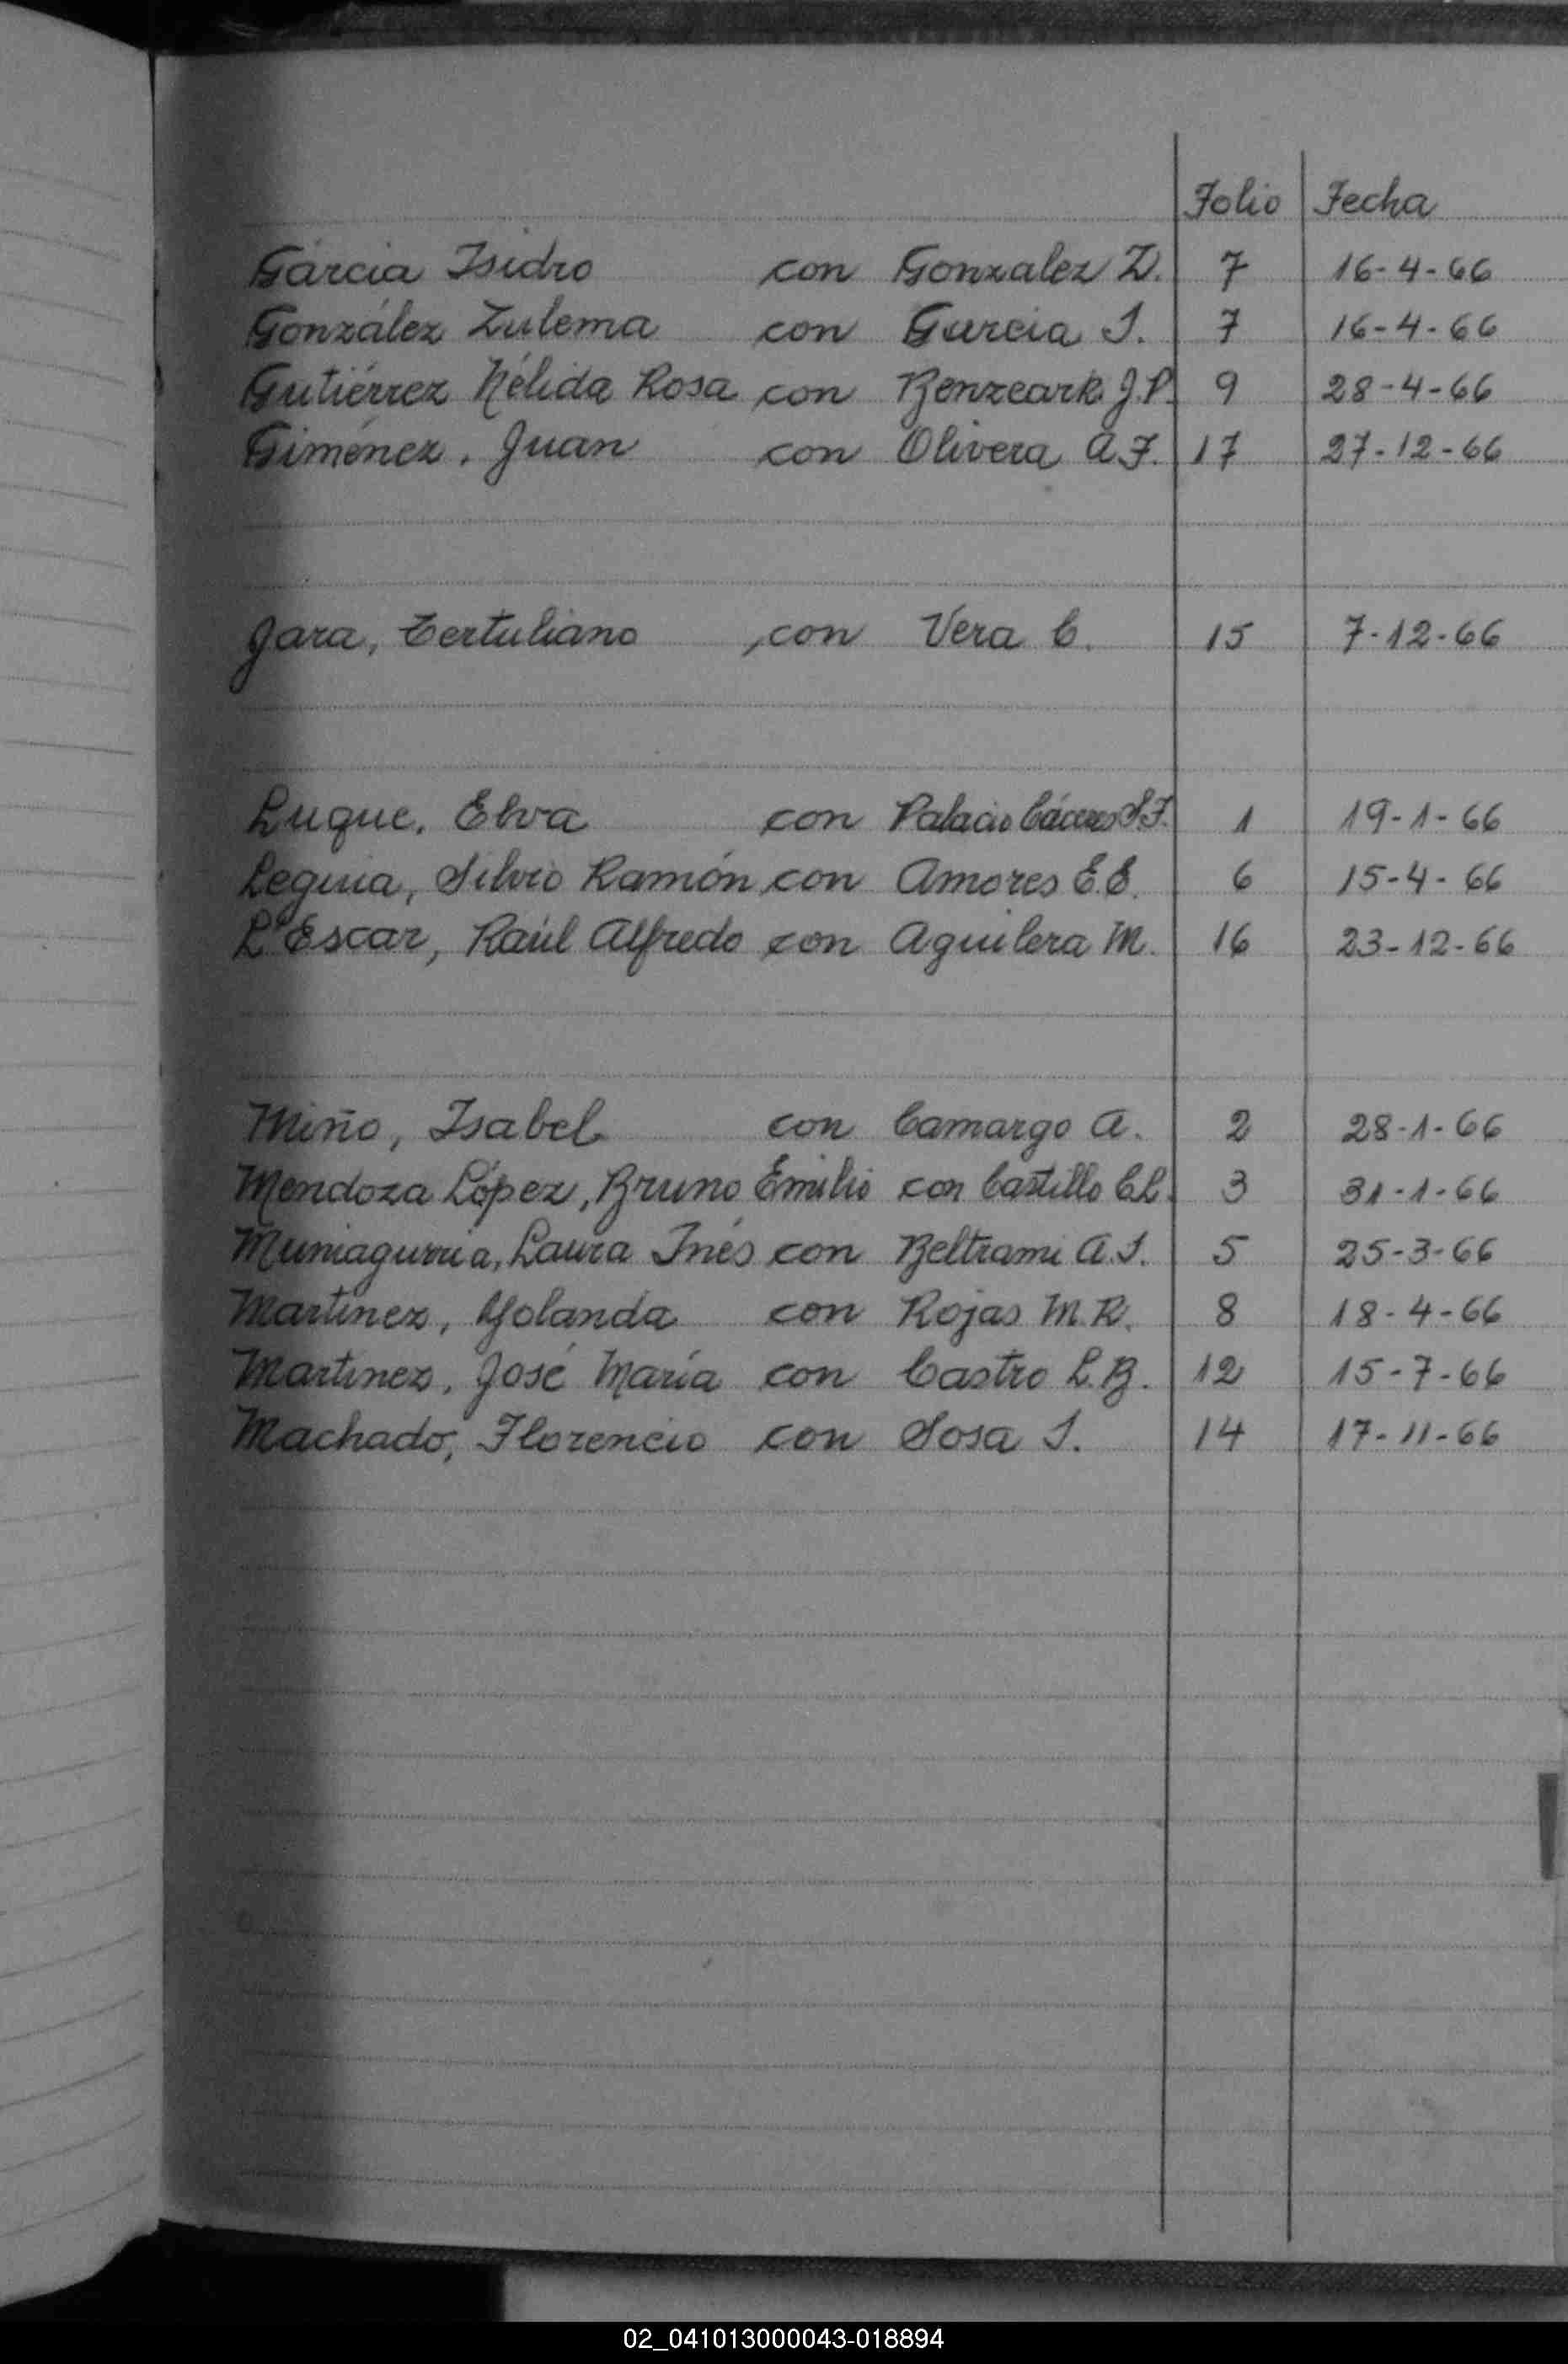 Folio Fecha
Garcia Isidro con Gonzalez Z. 7 16-4-66
González Zulema con Garcia I. 7 16-4-66
Gutiérrez Nélida Rosa con J.P. 9 28-4-66
Giménez, Juan con Olivera A.F. 17 27-12-66
Jara, Tertuliano con Vera C. 15 7-12-66
Luque, Elva con Palacio Cáceres S.F. 1 19-1-66
Leguia, Silvio Ramón con Amores E.E. 6 15-4-66
L'Escar, Raúl Alfredo con Aguilera M. 16 23-12-66
Miño, Isabel con Camargo A. 2 28-1-66
Mendoza López, Bruno Emilio con Castillo C.L. 3 31-1-66
Muniagurria, Laura Inés con Beltrami A.I. 5 25-3-66
Martínez, Yolanda con Rojas M.R. 8 18-4-66
Martinez, José María con Castro L.B. 12 15-7-66
Machado, Florencio con Sosa I. 14 17-11-66
02_041013000043-018894